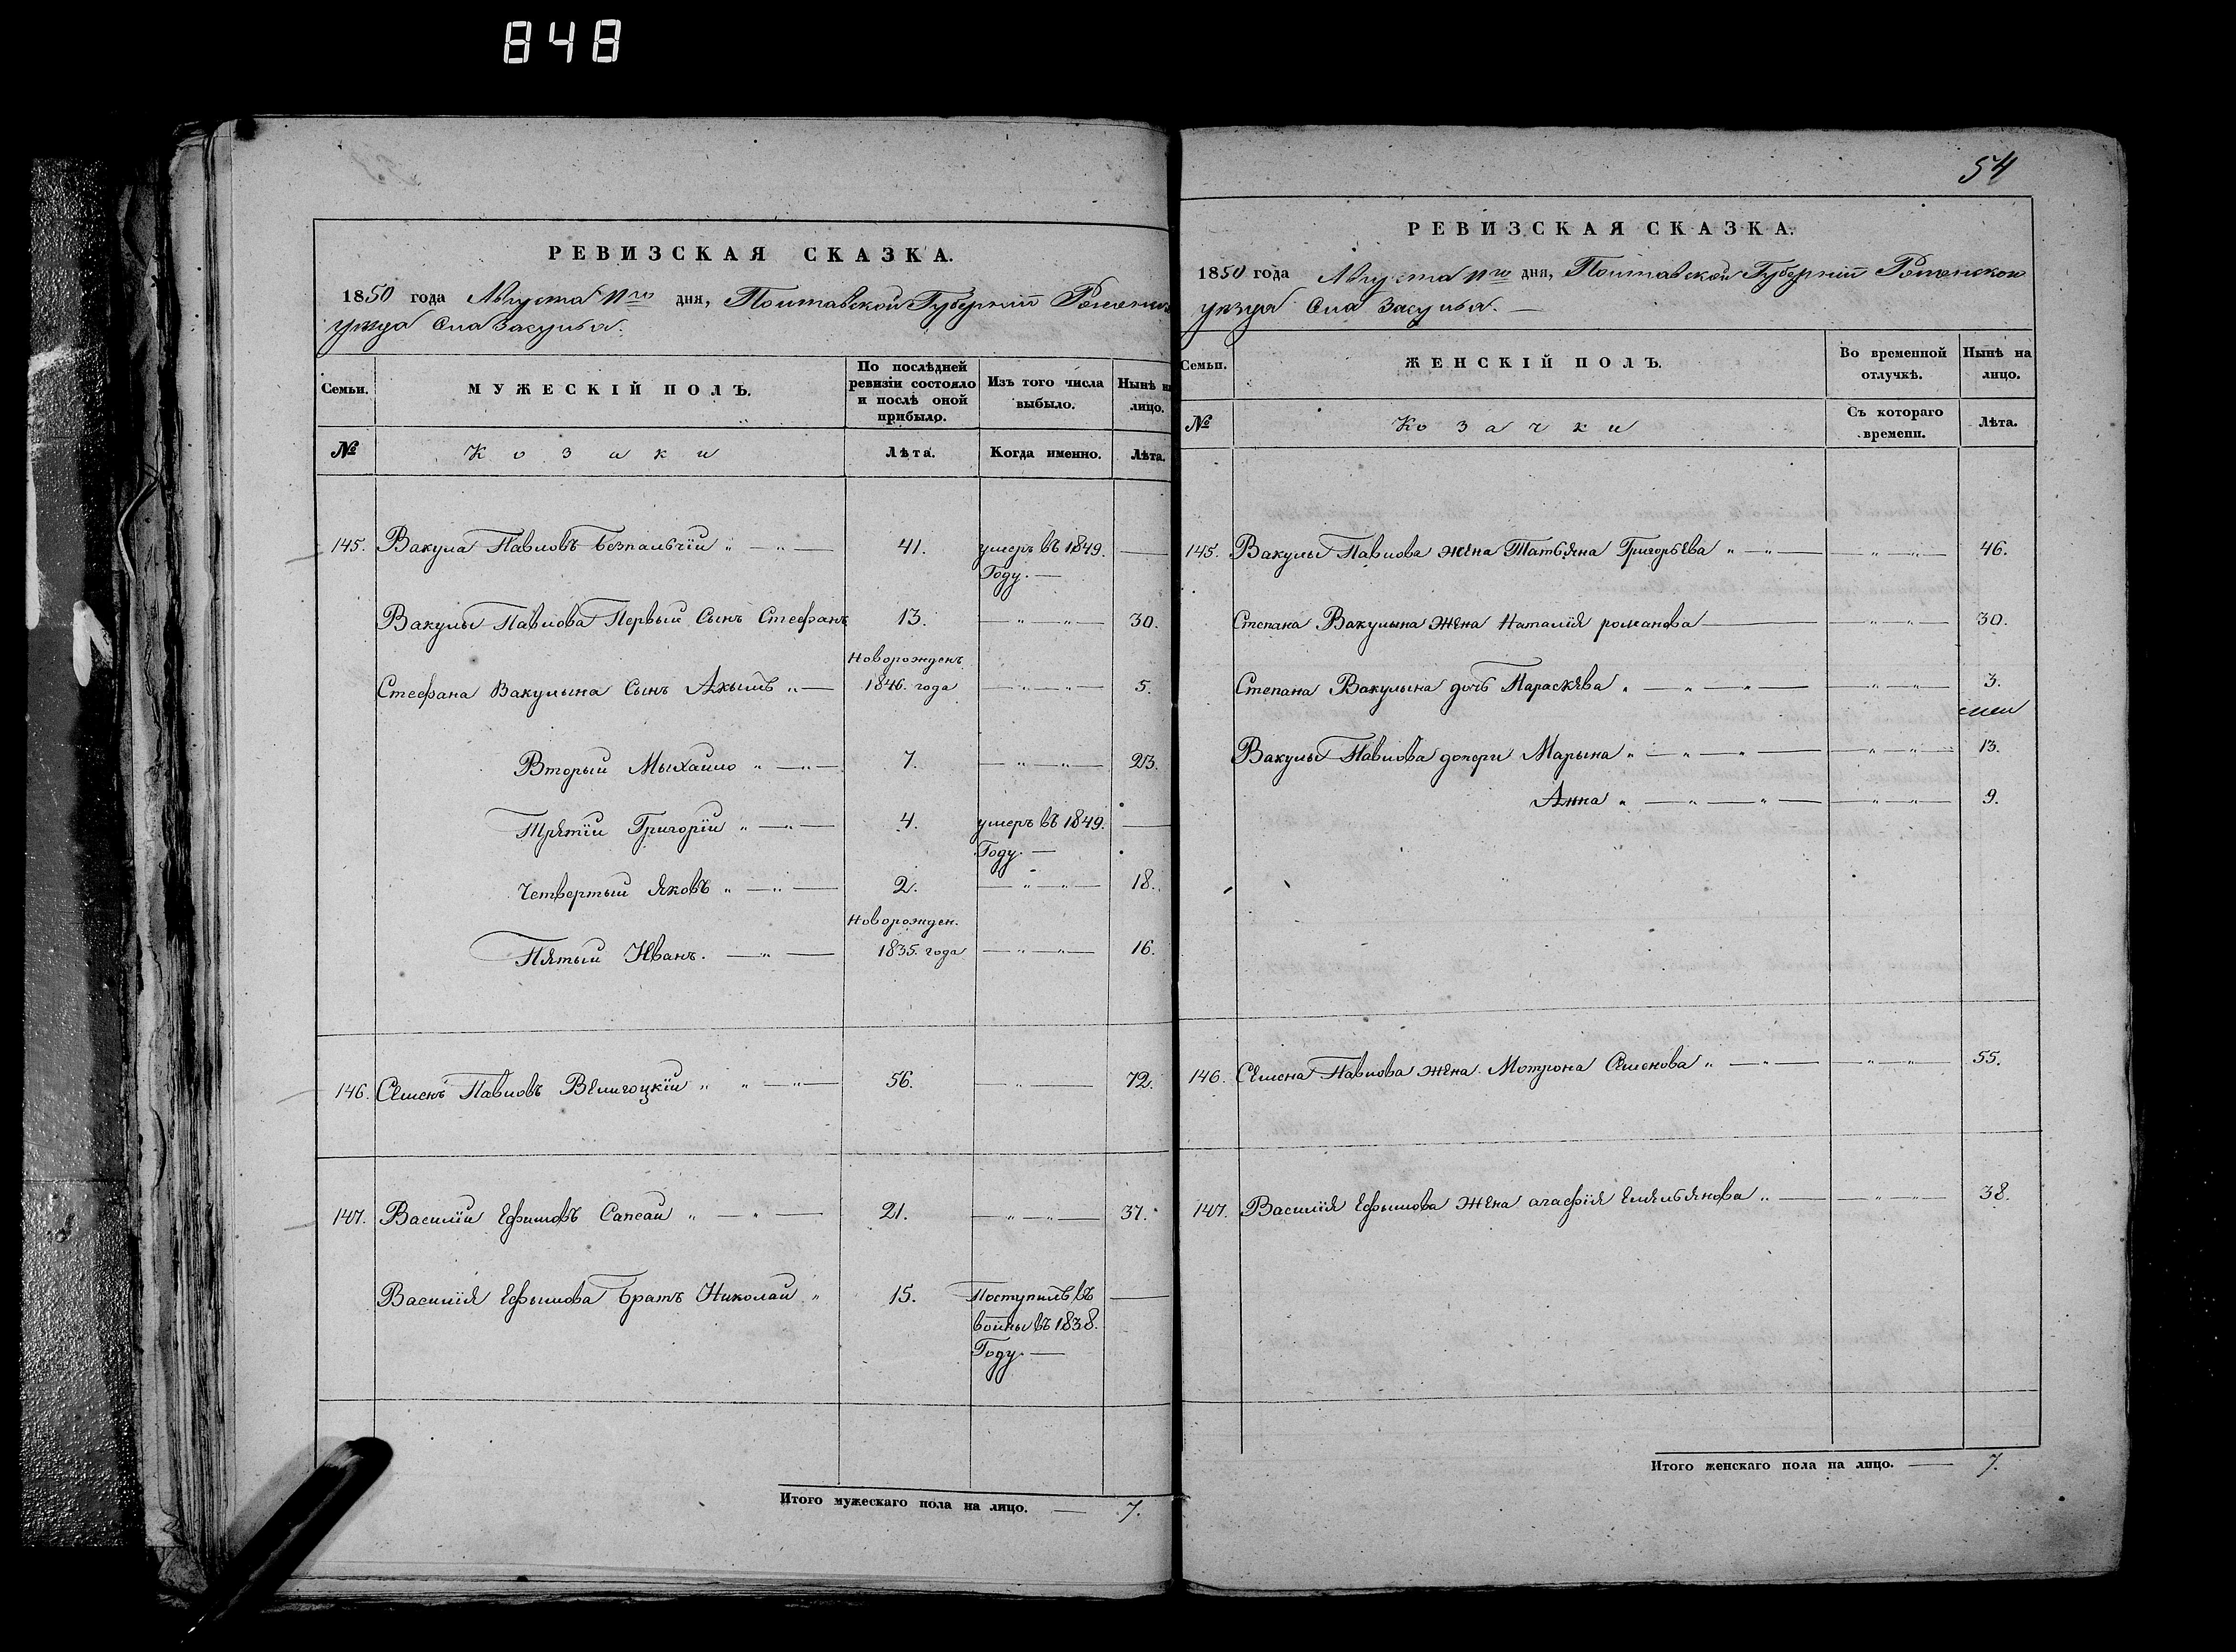 848
РЕВИЗСКАЯ СКАЗКА.
1850 года Августа 11го дня, Полтавской Губерніи
уезда Села Засулья.
Семьи.
МУЖЕСКІЙ ПОЛЪ.
По послѣдней ревизіи состояло и послѣ оной прибыло.
Изъ того числа выбыло.
Нынѣ на лицо.
№
Козаки
Лѣта.
Когда именно.
Лѣта.
145. Вакула Павловъ Безпальчій 41. умеръ въ 1849.
Году.
Вакулы Павлова Первый Сынъ Стефанъ 13. 30.
Новорожденъ
Стефана Вакулына Сынъ Акымъ 1846. года 5.
Вторый Мыхайло 7. 23.
Трятій Григорій 4. умеръ въ 1849.
Году.
Четвертый Яковъ 2. 18.
Новорожден.
Пятый Иванъ. 1835. года 16.
146. Семенъ Павловъ 56. 72.
147. Василій Ефимовъ Сапсай 21. 37.
Василія Ефымова Братъ Николай 15. Поступилъ въ
войны въ 1838.
Году.
Итого мужескаго пола на лицо. 7.
54
РЕВИЗСКАЯ СКАЗКА.
1850 года Августа 11го дня, Полтавской Губерніи Роменского
уезда Села Засулья.
Семьи.
ЖЕНСКІЙ ПОЛЪ.
Во временной отлучкѣ.
Нынѣ на лицо.
№
Козачки
Съ котораго времени.
Лѣта.
145. Вакулы Павлова жена Татьяна Григорьева 46.
Степана Вакулына жена Наталія романова 30.
Степана Вакулына дочь Параскева 3.
Вакулы Павлова дочери Марына 13.
Анна 9.
146. Семена Павлова жена Мотрона Семенова 55.
147. Василія Ефымова жена агафія Емельянова 38.
Итого женскаго пола на лицо. 7.